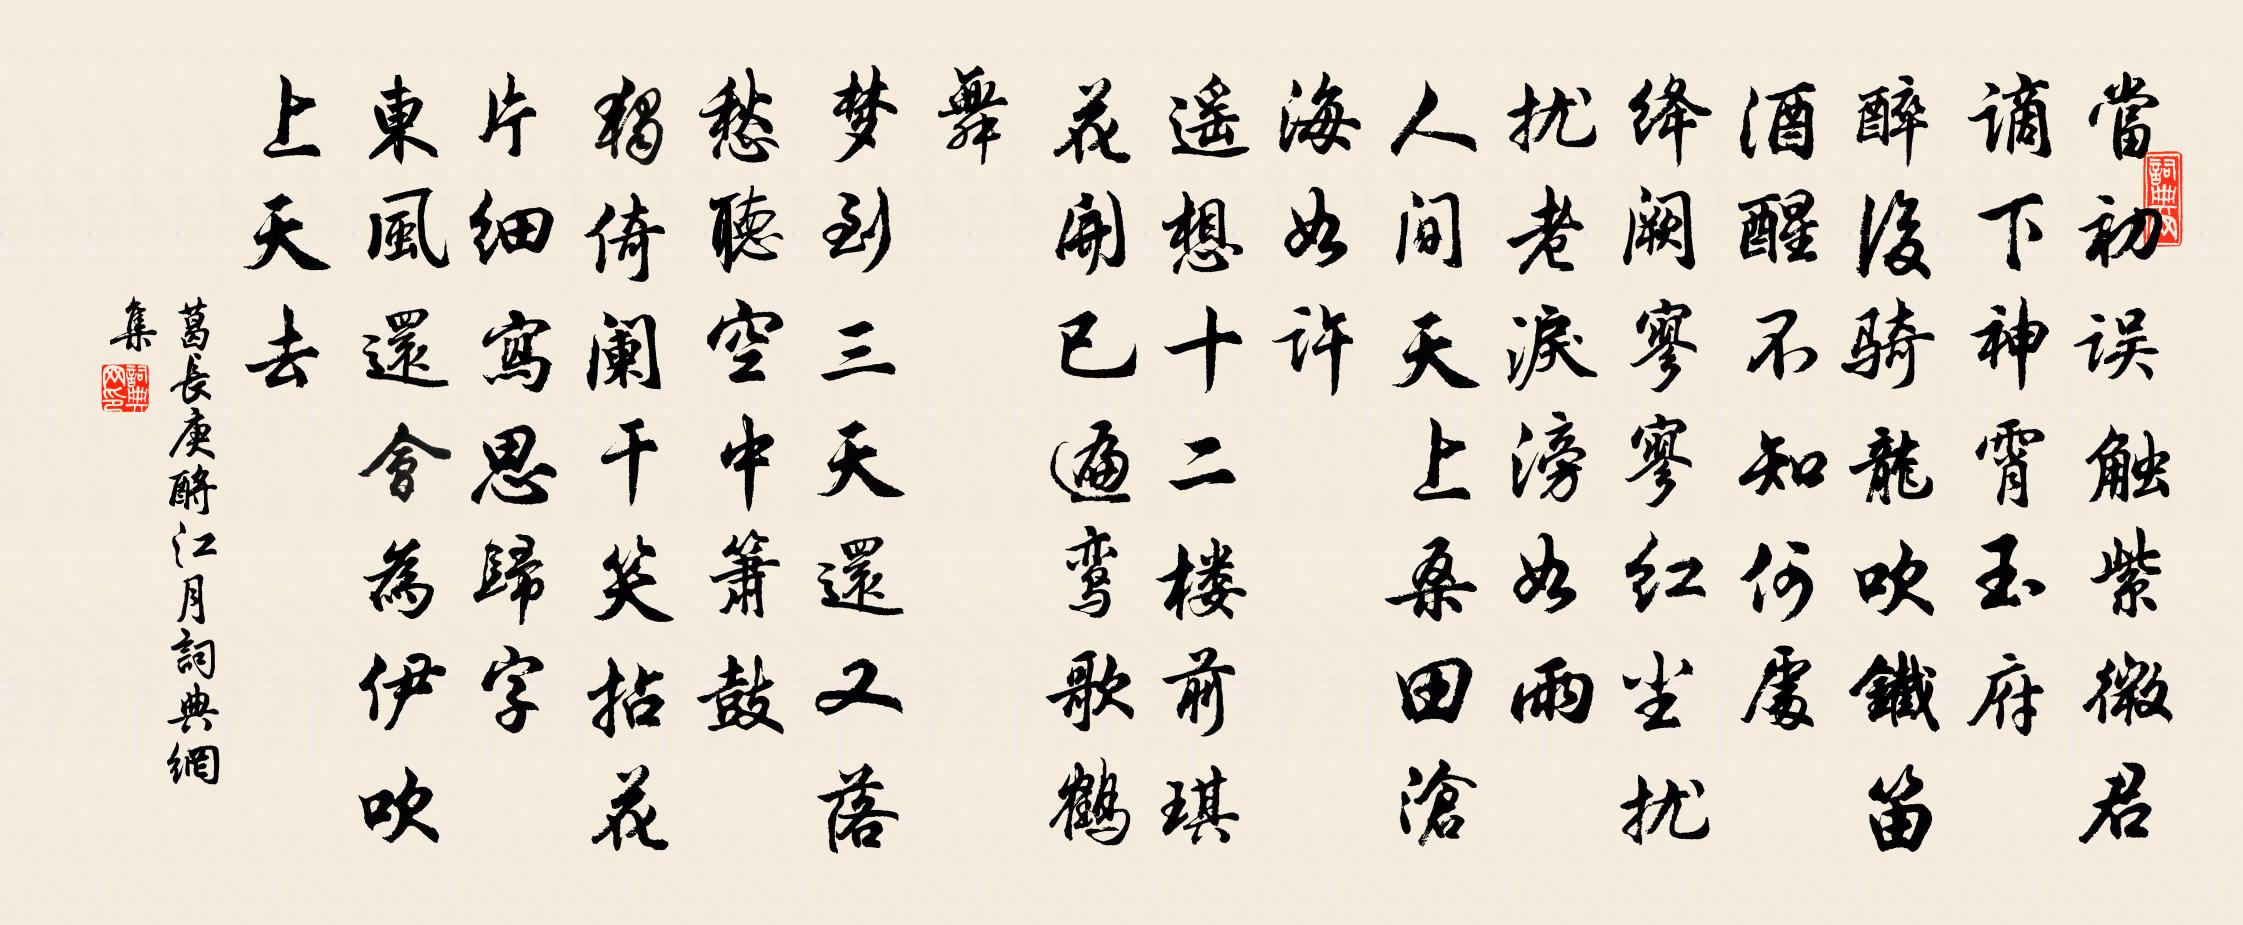 當初误触紫微君
谪下神霄玉府
醉後骑龍吹鐵笛
酒醒不知何處
绛阙寥寥红尘扰
扰老淚滂如雨
人间天上桑田滄
海如许
遥想十二楼前琪
花開已遍鸾歌鹤
舞
梦到三天還又落
愁聽空中簫鼓
獨倚阑干笑拈花
片细寫思歸字
東風還會為伊吹
上天去
葛長庚酹江月詞典網
集
詞典网
詞典网印